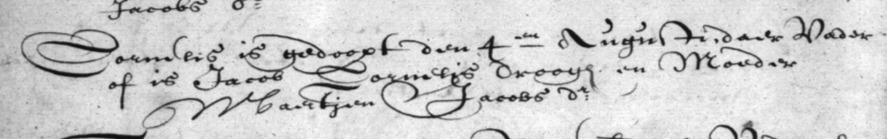 Jacobs dr
Cornelis is gedoopt den 4en Augusti, daer Vader
of is Jacob Cornelis droogh en Moeder
Maertjen Jacobs dr